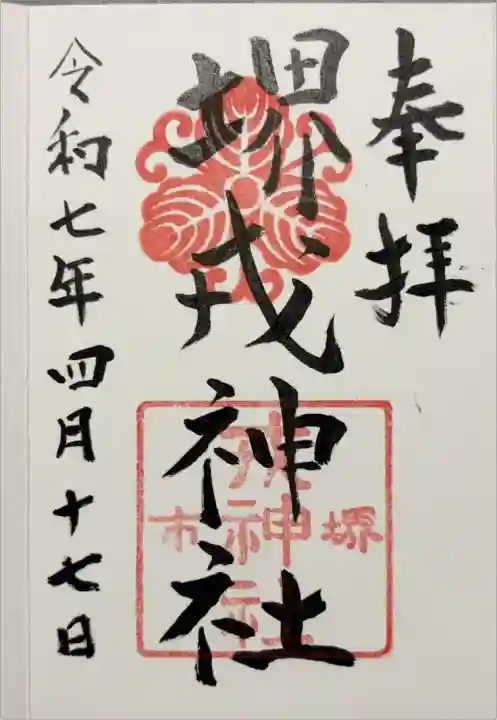 奉拝
堺戎神社
堺
神社
市
令和七年四月十七日